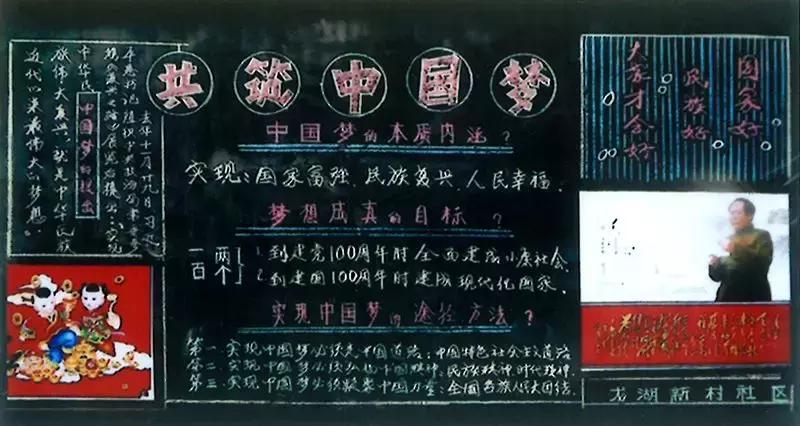 共筑中国梦
中国梦的本质内涵？
实现：国家富强、民族复兴、人民幸福．
梦想成真的目标？
两个一百
1.到建党100周年时全面建成小康社会．
2.到建国100周年时建成现代化国家．
实现中国梦的途径方法？
第一．实现中国梦必须走中国道路：中国特色社会主义道路
第二．实现中国梦必须弘扬中国精神：民族精神 时代精神．
第三．实现中国梦必须凝聚中国力量：全国各族人民大团结．
中国梦的提出
去年十一月廿九日习近
平总书记
现
中华民
族伟大复兴，就是中华民族
近代以来最伟大的梦想．
国家好
民族好
大家才会好
龙湖新村社区